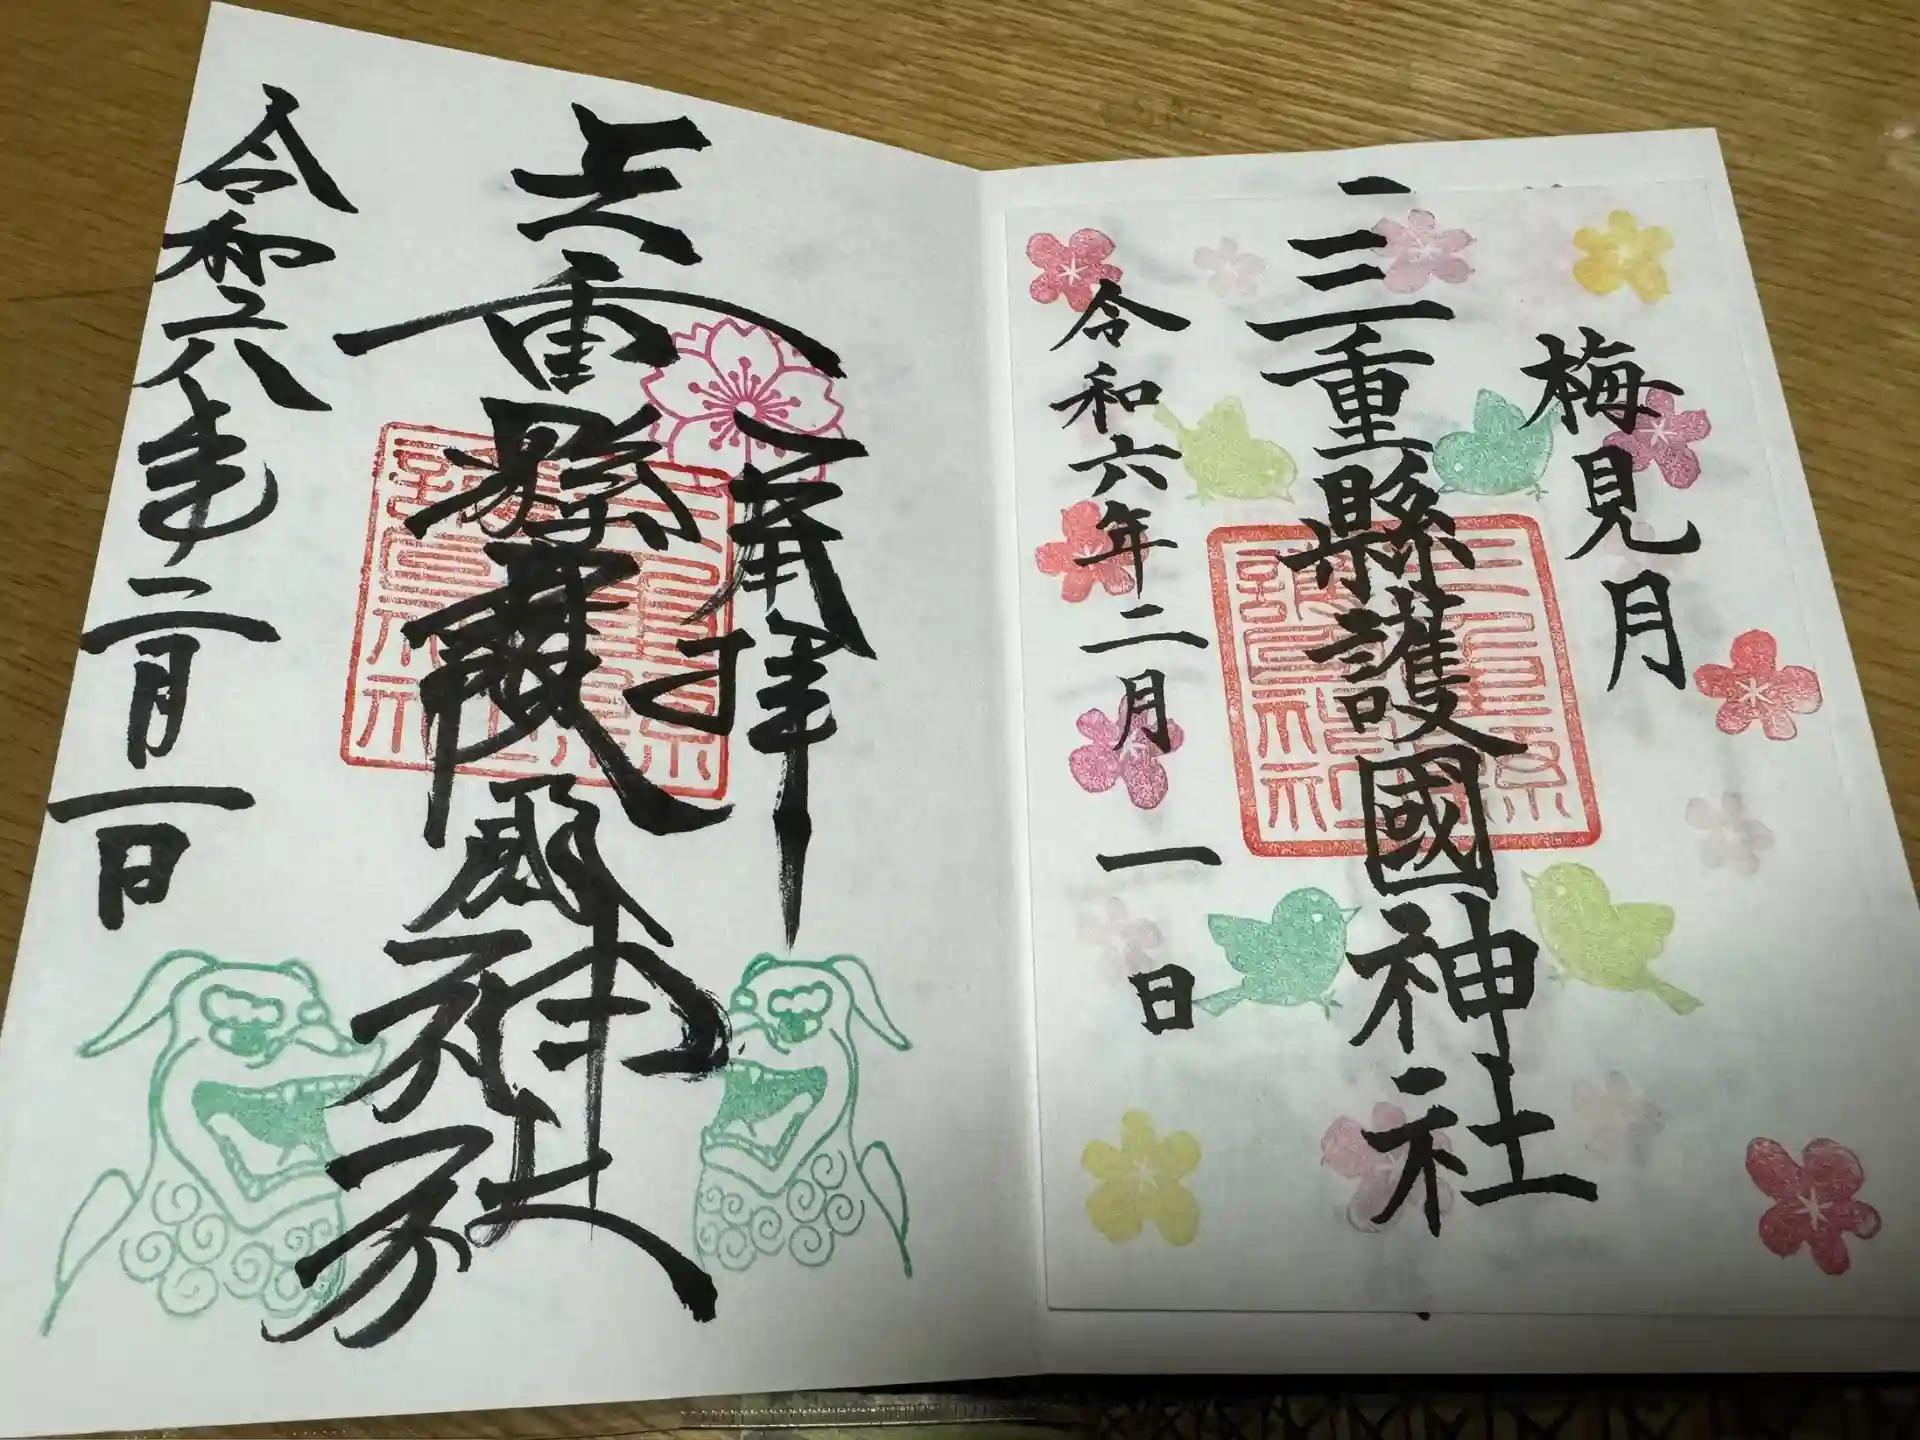 梅見月
三重縣護國神社
令和六年二月一日
奉拝
三重縣護國神社
令和六年二月一日